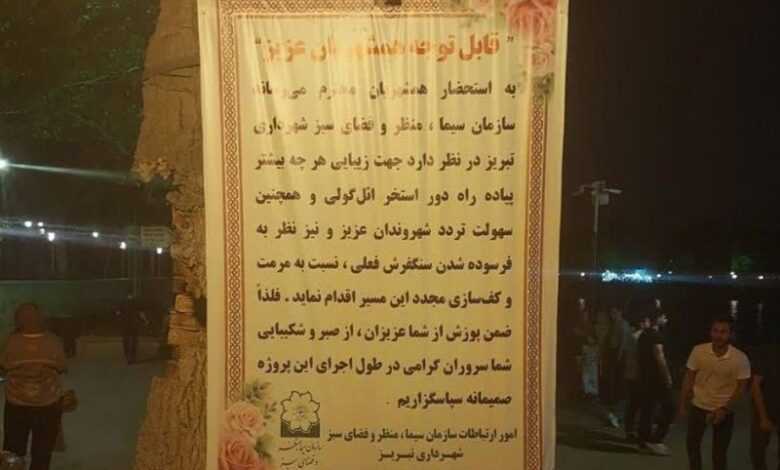 " قابل توجه همشهریان عزیز "
به استحضار همشهریان محترم می‌رساند
سازمان سیما ، منظر و فضای سبز شهرداری
تبریز در نظر دارد جهت زیبایی هر چه بیشتر
پیاده راه دور استخر ائل‌گولی و همچنین
سهولت تردد شهروندان عزیز و نیز نظر به
فرسوده شدن سنگفرش فعلی ، نسبت به مرمت
و کف‌سازی مجدد این مسیر اقدام نماید . فلذاً
ضمن پوزش از شما عزیزان ، از صبر و شکیبایی
شما سروران گرامی در طول اجرای این پروژه
صمیمانه سپاسگزاریم .
امور ارتباطات سازمان سیما، منظر و فضای سبز
شهرداری تبریز
سازمان سیما، منظر
و فضای سبز